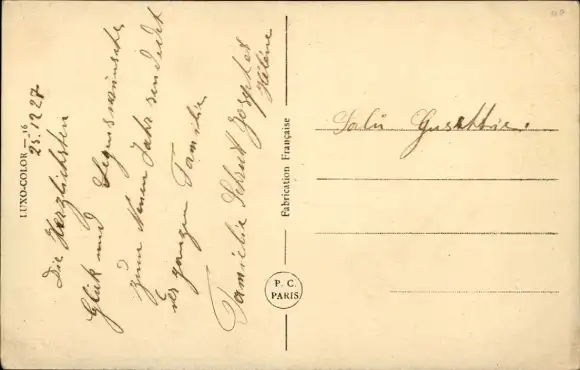 LUXO-COLOR — 16
25.12.27
Die Herzlichsten
Glük und Segenswünsche
zum Neuen Jahr sendet
der ganzen Familie
Familie Josephes
Hélène
Fabrication Française
P. C.
PARIS
Salü